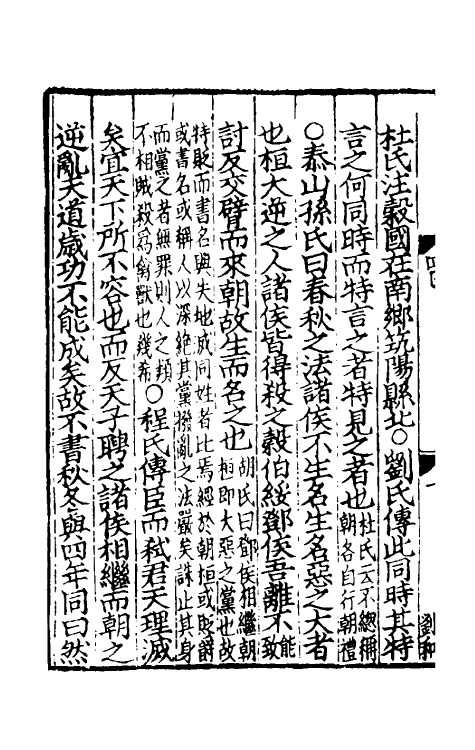 杜氏注穀國在南鄉筑陽縣北○劉氏傳此同時其特
言之何同時而特言之者特見之者也杜氏云不緫稱
朝各自行朝禮
○泰山孫氏曰春秋之法諸侯不生名生名惡之大者
也桓大逆之人諸侯皆得殺之穀伯綏鄧侯吾離不能致
計反交臂而來朝故生而名之也胡氏曰鄧侯相繼朝
桓即大惡之黨也故
特貶而書名與失地滅同姓者比焉經於朝桓或貶爵
或書名或稱人以深絶其黨撥亂之法嚴矣誅止其身
而黨之者無罪則人之類
不相賊殺爲禽獸也幾希○程氏傳臣而弑君天理滅
矣宜天下所不容也而反天子聘之諸侯相繼而朝之
逆亂天道歲功不能成矣故不書秋冬與四年同曰然